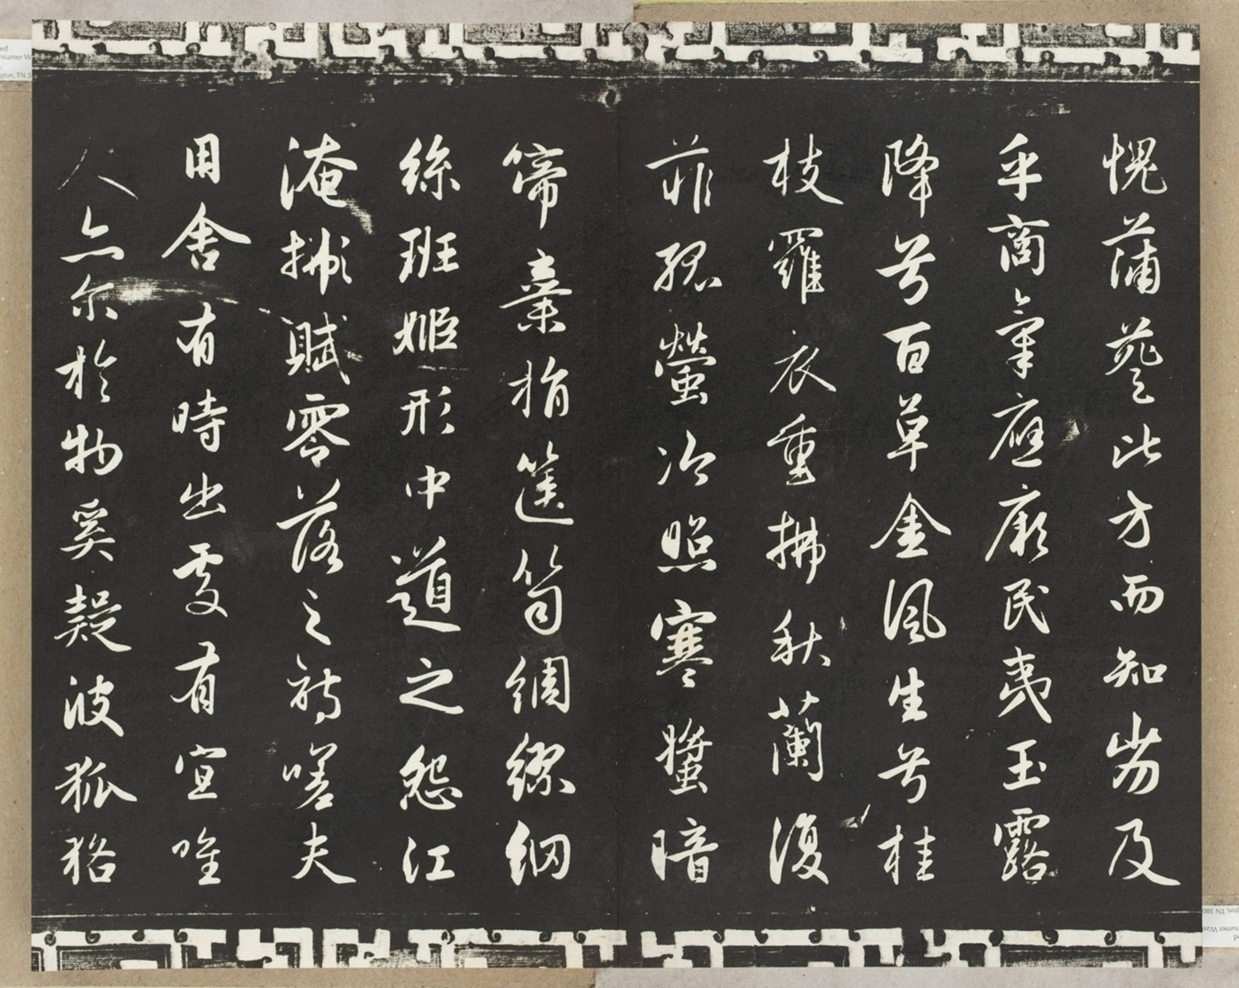 愧蒲葵比方而知劣及
乎商氣應厥民夷玉露
降兮百草金風生兮桂
枝羅衣重拂秋蘭復
菲孤螢冷照寒螿暗
啼棄捐篋笥綢繆網
絲班姬形中道之怨江
淹擬賦零落之詩嗟夫
用舍有時出處有宜唯
人亦尔於物奚疑彼狐狢